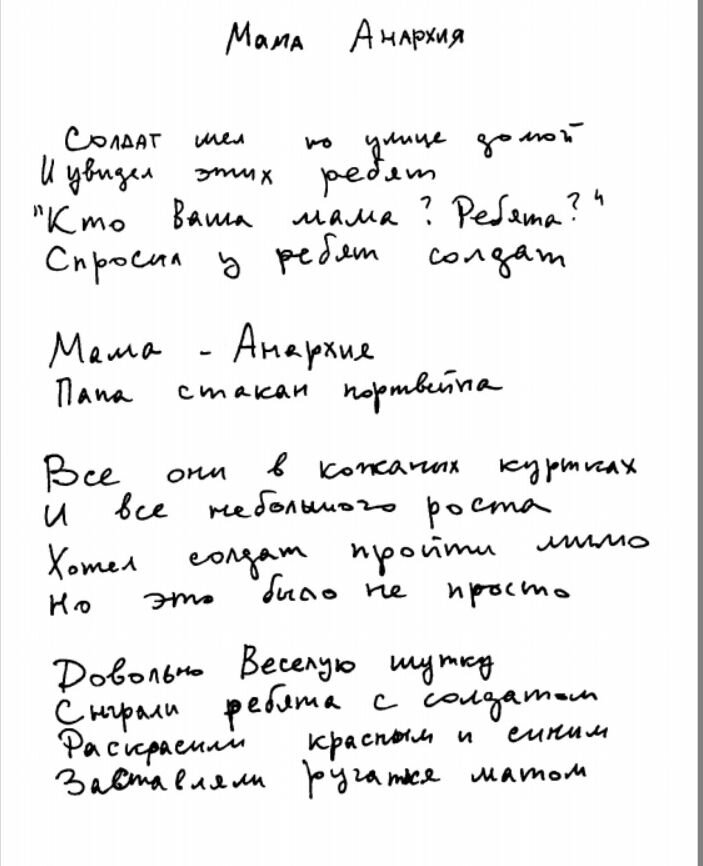 Мама Анархия
Солдат шел по улице домой
И увидел этих ребят
"Кто ваша мама? Ребята?"
Спросил у ребят солдат
Мама - Анархия
Папа стакан портвейна
Все они в кожаных куртках
И все небольшого роста
Хотел солдат пройти мимо
Но это было не просто
Довольно Веселую шутку
Сыграли ребята с солдатом
Раскрасили красным и синим
Заставляли ругаться матом